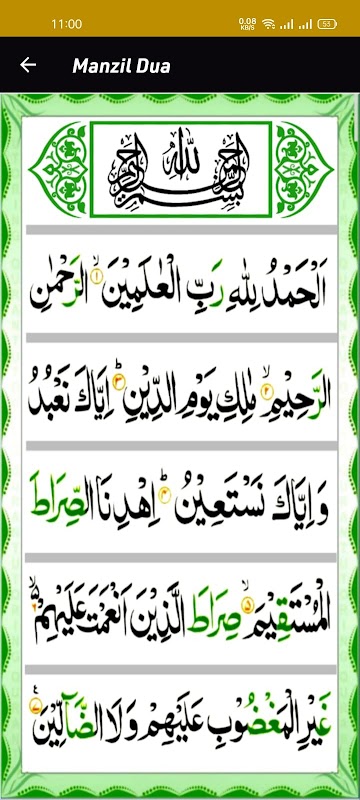 11:00 0.08 KB/S 53
Manzil Dua
بسم الله الرحمن الرحيم
اَلْحَمْدُ لِلّٰهِ رَبِّ الْعٰلَمِيْنَ ۙ﴿۱﴾ الرَّحْمٰنِ
الرَّحِيْمِ ۙ﴿۲﴾ مٰلِكِ يَوْمِ الدِّيْنِ ؕ﴿۳﴾ اِيَّاكَ نَعْبُدُ
وَاِيَّاكَ نَسْتَعِيْنُ ؕ﴿۴﴾ اِهْدِنَا الصِّرَاطَ
الْمُسْتَقِيْمَ ۙ﴿۵﴾ صِرَاطَ الَّذِيْنَ اَنْعَمْتَ عَلَيْهِمْ ۙ﴿۶﴾
غَيْرِ الْمَغْضُوْبِ عَلَيْهِمْ وَلَا الضَّآلِّيْنَ ﴿۷﴾